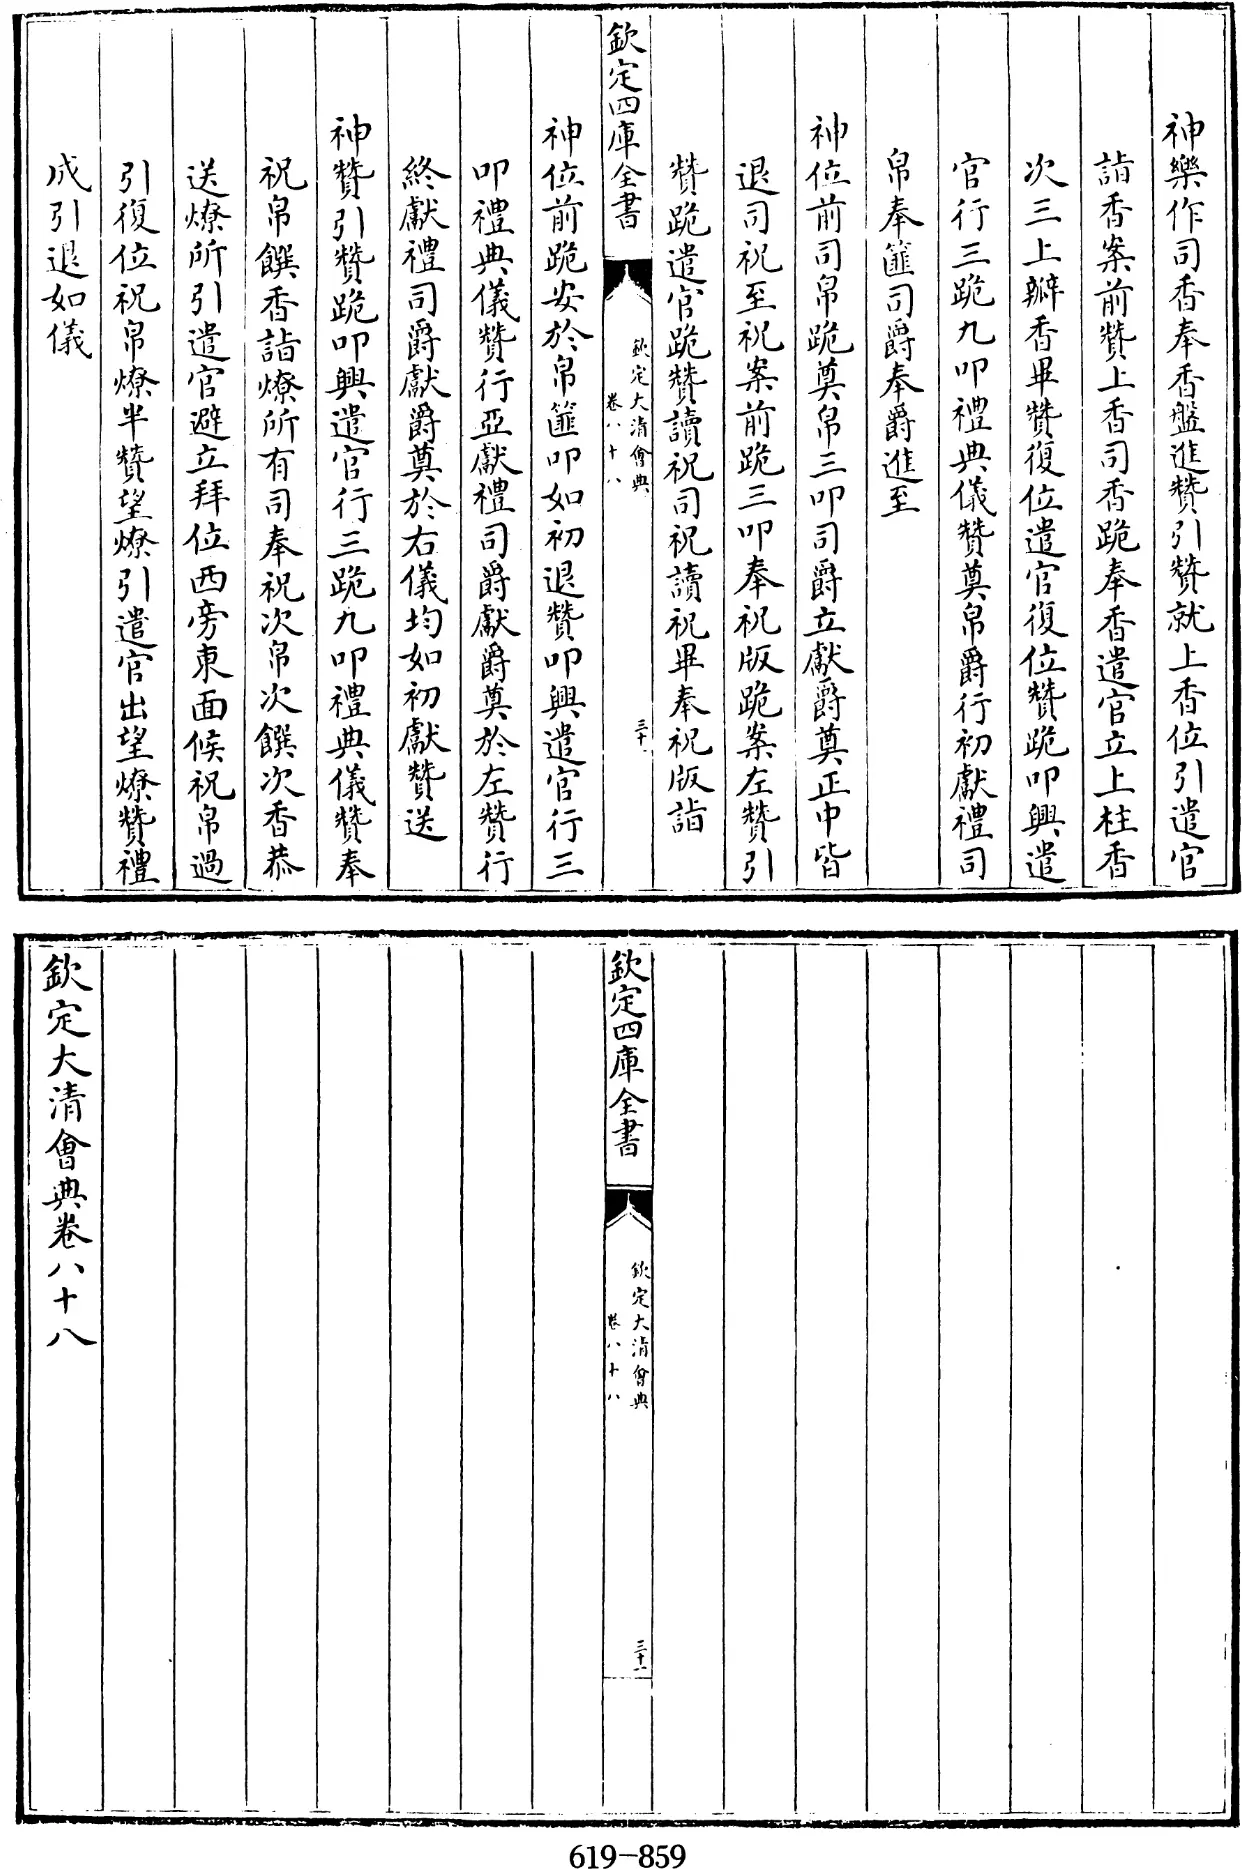 神樂作司香奉香盤進贊引贊就上香位引遣官
詣香案前贊上香司香跪奉香遣官立上柱香
次三上瓣香畢贊復位遣官復位贊跪叩興遣
官行三跪九叩禮典儀贊奠帛爵行初獻禮司
帛奉篚司爵奉爵進至
神位前司帛跪奠帛三叩司爵立獻爵奠正中皆
退司祝至祝案前跪三叩奉祝版跪案左贊引
贊跪遣官跪贊讀祝司祝讀祝畢奉祝版詣
欽定四庫全書
欽定大清會典
卷八十八
三十一
神位前跪安於帛篚叩如初退贊叩興遣官行三
叩禮典儀贊行亞獻禮司爵獻爵奠於左贊行
終獻禮司爵獻爵奠於右儀均如初獻贊送
神贊引贊跪叩興遣官行三跪九叩禮典儀贊奉
祝帛饌香詣燎所有司奉祝次帛次饌次香恭
送燎所引遣官避立拜位西旁東面候祝帛過
引復位祝帛燎半贊望燎引遣官出望燎贊禮
成引退如儀
欽定四庫全書
欽定大清會典
卷八十八
三十一
欽定大清會典卷八十八
619-859